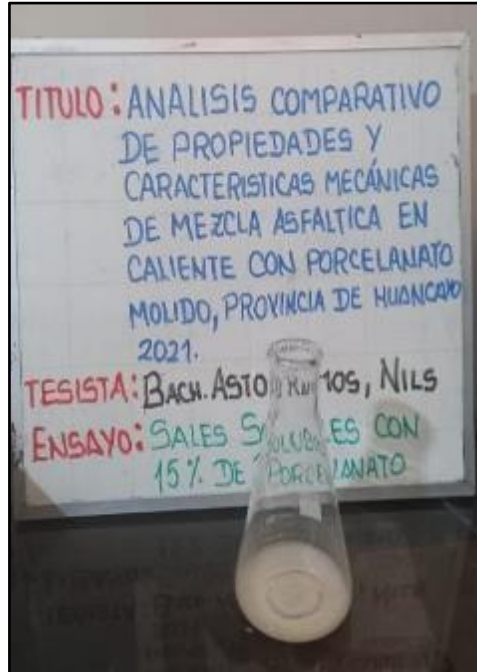 TITULO: ANALISIS COMPARATIVO
DE PROPIEDADES Y
CARACTERISTICAS MECÁNICAS
DE MEZCLA ASFALTICA EN
CALIENTE CON PORCELANATO
MOLIDO, PROVINCIA DE HUANCAYO
2021.
TESISTA: BACH. ASTO, NILS
ENSAYO: SALES SOLUBLES CON
15% DE PORCELANATO